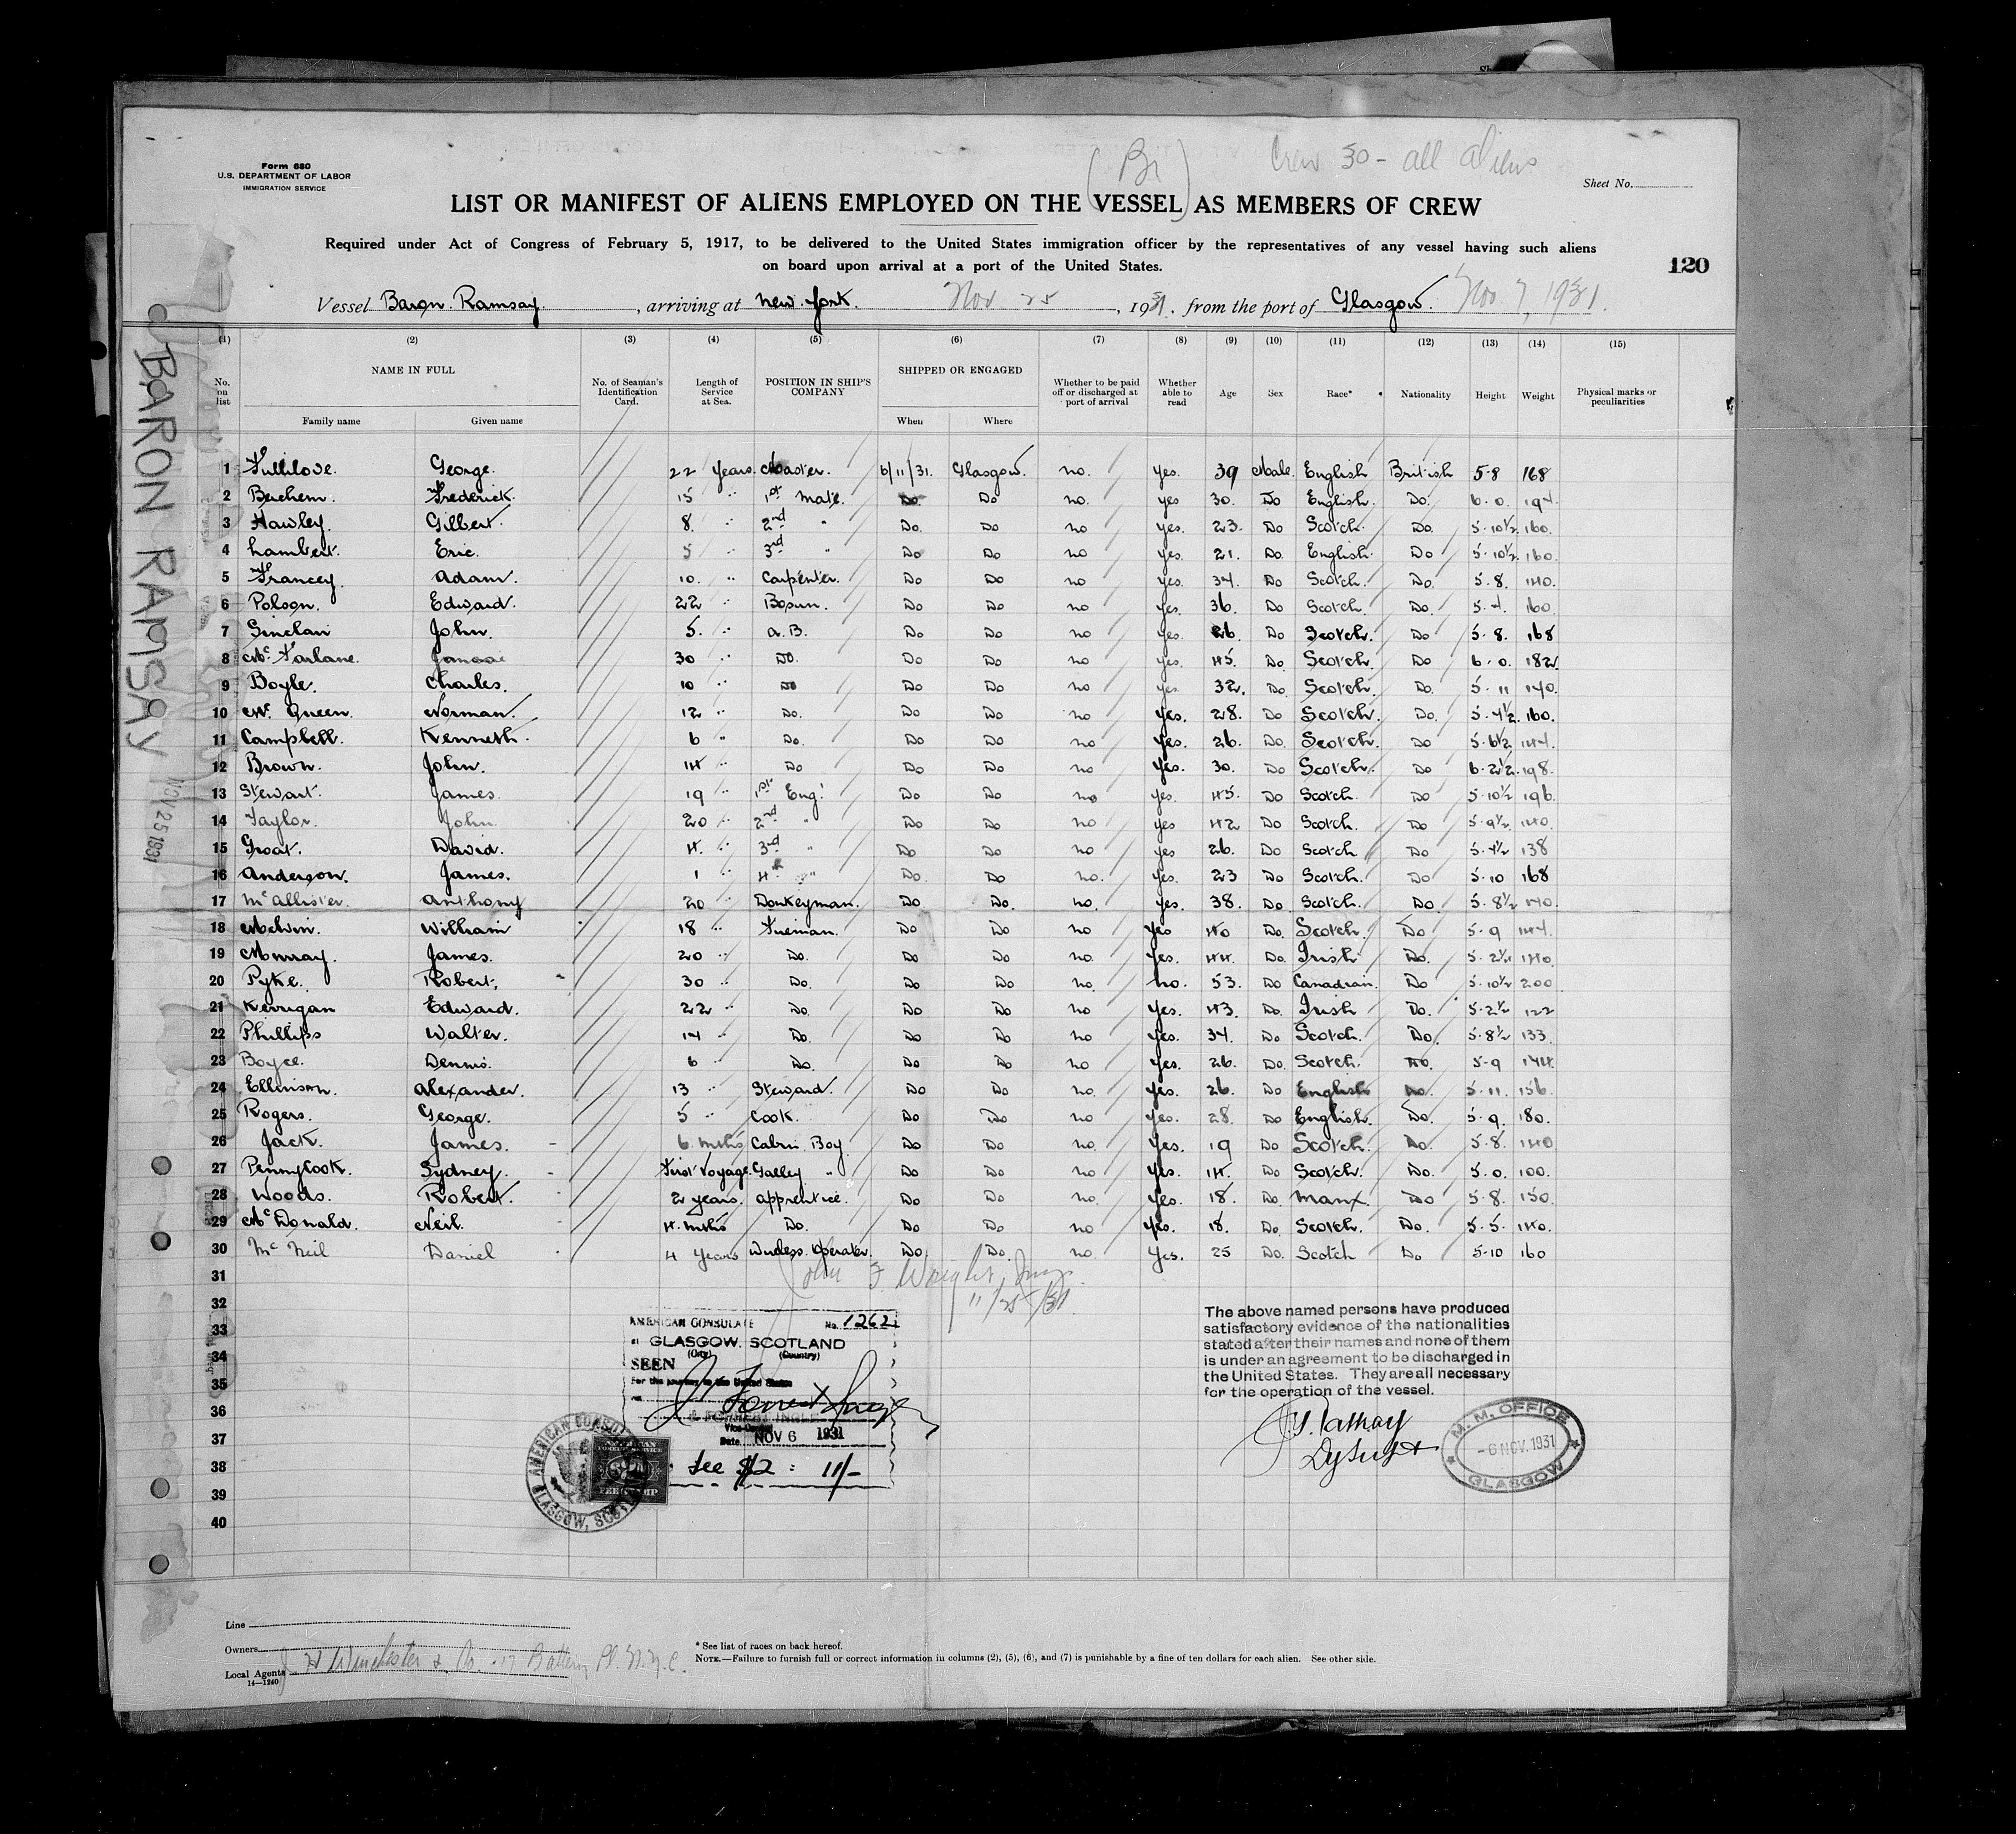 Form 680
U.S. DEPARTMENT OF LABOR
IMMIGRATION SERVICE
(Br)
Crew 30 - all aliens
Sheet No.
LIST OR MANIFEST OF ALIENS EMPLOYED ON THE VESSEL AS MEMBERS OF CREW
Required under Act of Congress of February 5, 1917, to be delivered to the United States immigration officer by the representatives of any vessel having such aliens
on board upon arrival at a port of the United States.
120
Vessel Baron Ramsay, arriving at New York. Nov 25, 1931, from the port of Glasgow. Nov 7, 1931.
BARON RAMSAY
NOV 25 1931
(1) (2) (3) (4) (5) (6) (7) (8) (9) (10) (11) (12) (13) (14) (15)
No. on list NAME IN FULL Family name Given name No. of Seaman's Identification Card. Length of Service at Sea. POSITION IN SHIP'S COMPANY SHIPPED OR ENGAGED When Where Whether to be paid off or discharged at port of arrival Whether able to read Age Sex Race* Nationality Height Weight Physical marks or peculiarities
1 Fullilove. George. 22 Years. Master. 6/11/31. Glasgow. no. yes. 39 Male. English British 5-8 168
2 Berchem. Frederick. 15 " 1st Mate. Do Do no. yes 30. Do English. Do. 6-0. 194.
3 Hawley. Gilbert. 8 " 2nd " Do. Do no yes. 23. Do Scotch. Do. 5-10½ 160.
4 Lambert. Eric. 5 " 3rd " Do Do no yes. 21. Do. English. Do 5-10½ 160.
5 Francey. Adam. 10. " Carpenter. Do Do no yes. 34. Do Scotch. Do. 5.8. 140.
6 Polson. Edward. 22 " Bosun. Do Do no yes. 36. Do Scotch. Do. 5-4. 160.
7 Sinclair John. 5. " A.B. Do Do no yes. 26. Do Scotch. Do 5-8. 168
8 McFarlane. 30 " Do. Do Do no yes. 45. Do. Scotch. Do 6-0. 182.
9 Boyle. Charles. 10 " Do Do Do no yes. 32. Do. Scotch. Do. 5-11 140.
10 Mc Queen. Norman. 12 " Do. Do Do no yes. 28. Do Scotch. Do. 5-4½. 160.
11 Campbell. Kenneth. 6 " Do. Do Do no yes. 26. Do. Scotch. Do 5-6½ 144.
12 Brown. John. 14 " Do Do Do no yes. 30. Do Scotch. Do 6-2½. 198.
13 Stewart. James. 19 " 1st Eng. Do Do no yes. 45. Do Scotch. Do 5-10½ 196.
14 Taylor. John. 20 " 2nd " Do Do no yes 42 Do Scotch. Do 5-9½ 140.
15 Groat. David. 4. " 3rd " Do Do no yes 26. Do Scotch Do 5-4½ 138
16 Anderson. James. 1 " 4th " Do. Do no. yes. 23 Do Scotch. Do 5-10 168
17 McAllister. Anthony 20 " Donkeyman. Do Do. no. yes. 38. Do. Scotch. Do. 5-8½ 140.
18 Melvin. William 18 " Fireman. Do Do no yes 40 Do. Scotch. Do 5-9 144.
19 Murray. James. 20 " Do. Do Do no. yes. 44. Do. Irish Do. 5-2½ 140.
20 Pyke. Robert. 30 " Do. Do Do no. no. 53. Do Canadian. Do 5-10½ 200.
21 Kerrigan Edward. 22 " Do. Do Do no yes. 43. Do. Irish Do. 5-2½ 122
22 Phillips Walter. 14 " Do. Do Do no yes. 34. Do. Scotch. Do. 5-8½ 133.
23 Boyce. Dennis. 6 " Do. Do Do no yes. 26. Do. Scotch. Do. 5-9 144.
24 Ellinson. Alexander. 13 " Steward. Do Do no. yes. 26. Do English Do. 5-11. 156.
25 Rogers. George. 5 " Cook. Do Do no yes. 28 Do English. Do. 5-9. 180.
26 Jack. James. 6 mths Cabin Boy Do Do no yes. 19 Do Scotch. Do. 5-8. 140
27 Pennycook. Sydney. First Voyage. Galley " Do Do no yes. 14. Do Scotch. Do. 5.0. 100.
28 Woods. Robert. 2 years. Apprentice. Do Do no. yes. 18. Do. Manx. Do 5-8. 150.
29 McDonald. Neil. 4. mths Do. Do Do no yes. 18. Do. Scotch. Do. 5-5. 140.
30 Mc Neil Daniel 4 Years Wireless Operator. Do Do. no. Yes. 25 Do. Scotch Do 5-10 160
31
32
33
34
35
36
37
38
39
40
John F Wright, Insp.
11/25/31
AMERICAN CONSULATE No. 1262
at GLASGOW, SCOTLAND
(City) (Country)
SEEN
For the journey to the United States
Vice Consul
Date NOV 6 1931
Fee $2 : 11/-
AMERICAN CONSULATE GLASGOW, SCOTLAND
The above named persons have produced
satisfactory evidence of the nationalities
stated after their names and none of them
is under an agreement to be discharged in
the United States. They are all necessary
for the operation of the vessel.
Dy Supt
M. M. OFFICE
-6 NOV. 1931
GLASGOW
Line
Owners
Local Agents J H Winchester & Co. 17 Battery Pl. N.Y.C.
14—1240
* See list of races on back hereof.
NOTE.—Failure to furnish full or correct information in columns (2), (5), (6), and (7) is punishable by a fine of ten dollars for each alien. See other side.